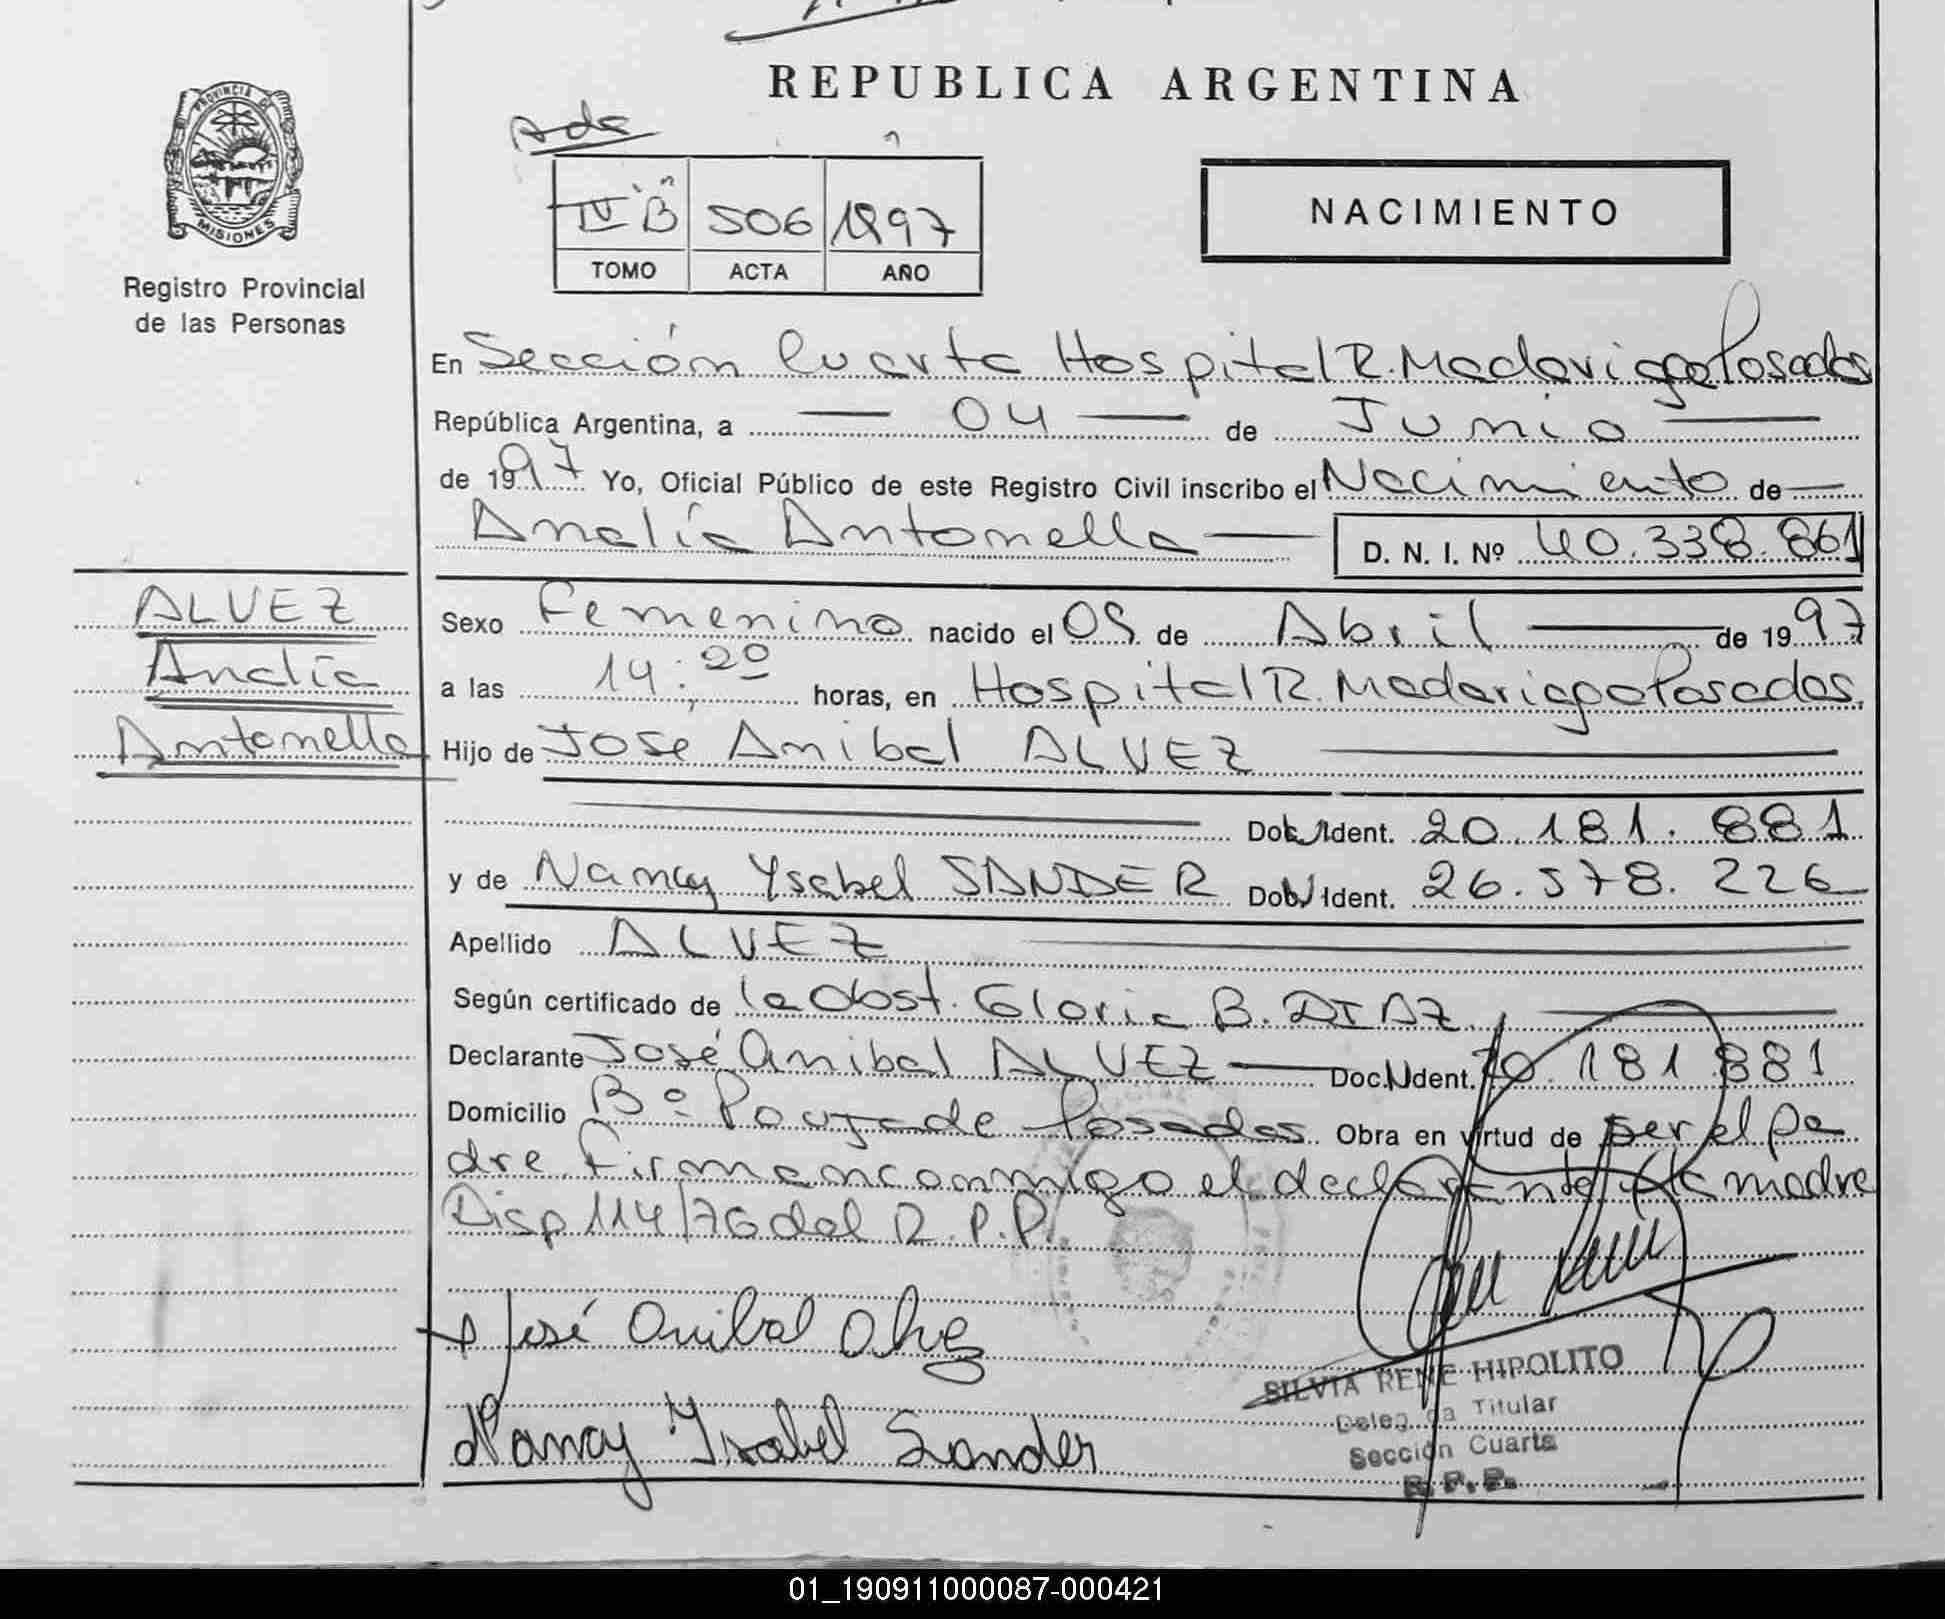 REPUBLICA ARGENTINA
PROVINCIA DE
MISIONES
Registro Provincial
de las Personas
Ade
IV B 506 1997
TOMO ACTA AÑO
NACIMIENTO
En Sección Cuarta Hospital R. Madariaga Posadas
República Argentina, a 04 de Junio
de 1997 Yo, Oficial Público de este Registro Civil inscribo el Nacimiento de
Analía Antonella D. N. I. Nº 40.338.861
ALVEZ
Analía
Antonella
Sexo Femenino nacido el 09 de Abril de 1997
a las 14:20 horas, en Hospital R. Madariaga Posadas.
Hijo de Jose Anibal ALVEZ
Doc. Ident. 20.181.881
y de Nancy Ysabel SANDER Doc. Ident. 26.578.226
Apellido ALVEZ
Según certificado de la Obst. Gloria B. DIAZ
Declarante José Anibal ALVEZ Doc. Ident. 20.181 881
Domicilio Bº Poujade Posadas Obra en virtud de ser el pa
dre Firman conmigo el declarante y la madre
Disp 114/76 del R.P.P.
José Anibal Alvez
Nancy Ysabel Sander
SILVIA RENE HIPOLITO
Delegada Titular
Sección Cuarta
R. P. P.
01_190911000087-000421